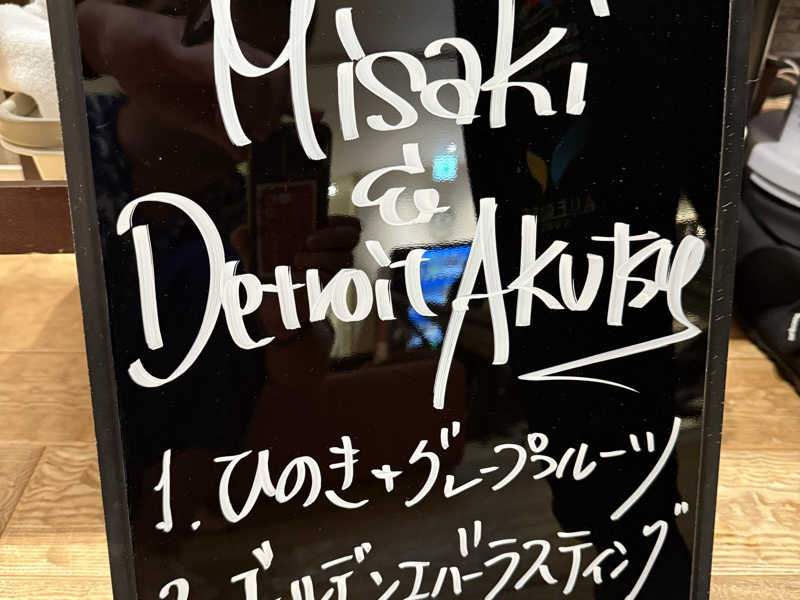 Misaki
&
Detroit Akutsu
1. ひのき+グレープフルーツ
2. ゴールデンエバーラスティング